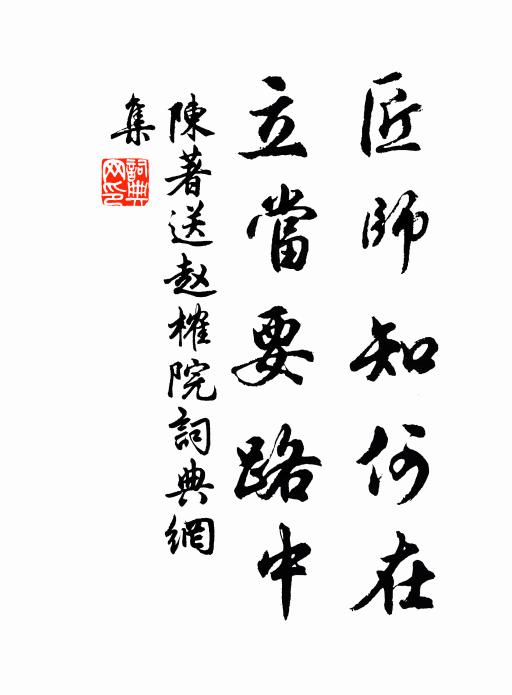 匠師知何在
立當要路中
陳著送赵榷院詞典網
集
詞典
网印